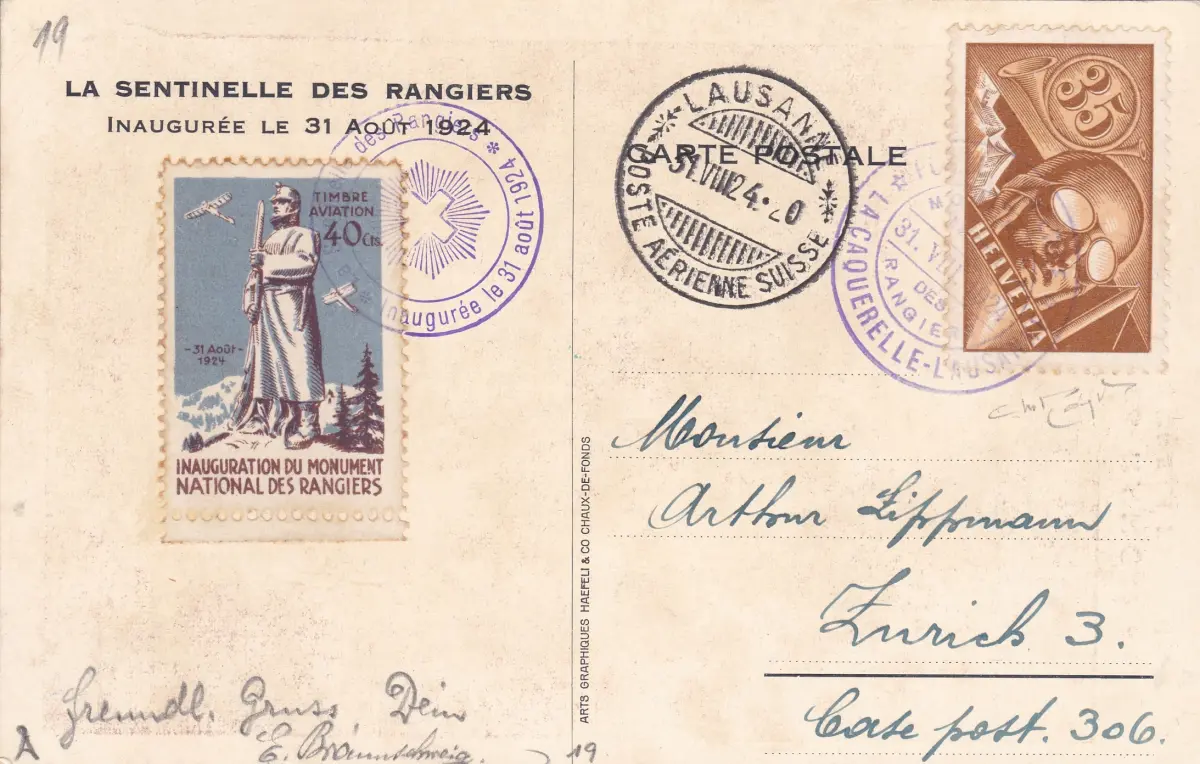 19
LA SENTINELLE DES RANGIERS
INAUGURÉE LE 31 AOÛT 1924
des Rangiers * Inaugurée le 31 août 1924 *
TIMBRE
AVIATION
40 Cts.
-31 Août-
1924
INAUGURATION DU MONUMENT
NATIONAL DES RANGIERS
Freundl. Gruss, Dein
E. Braunschweig.
A
19
ARTS GRAPHIQUES HAEFELI & CO CHAUX-DE-FONDS
CARTE POSTALE
LAUSANNE
31.VIII24.-20
POSTE AÉRIENNE SUISSE
LA CAQUERELLE-LAUSA
31. VIII 24
DES
RANGIE
35
HELVETIA
Monsieur
Arthur Lippmann
Zurich 3.
Case post. 306.